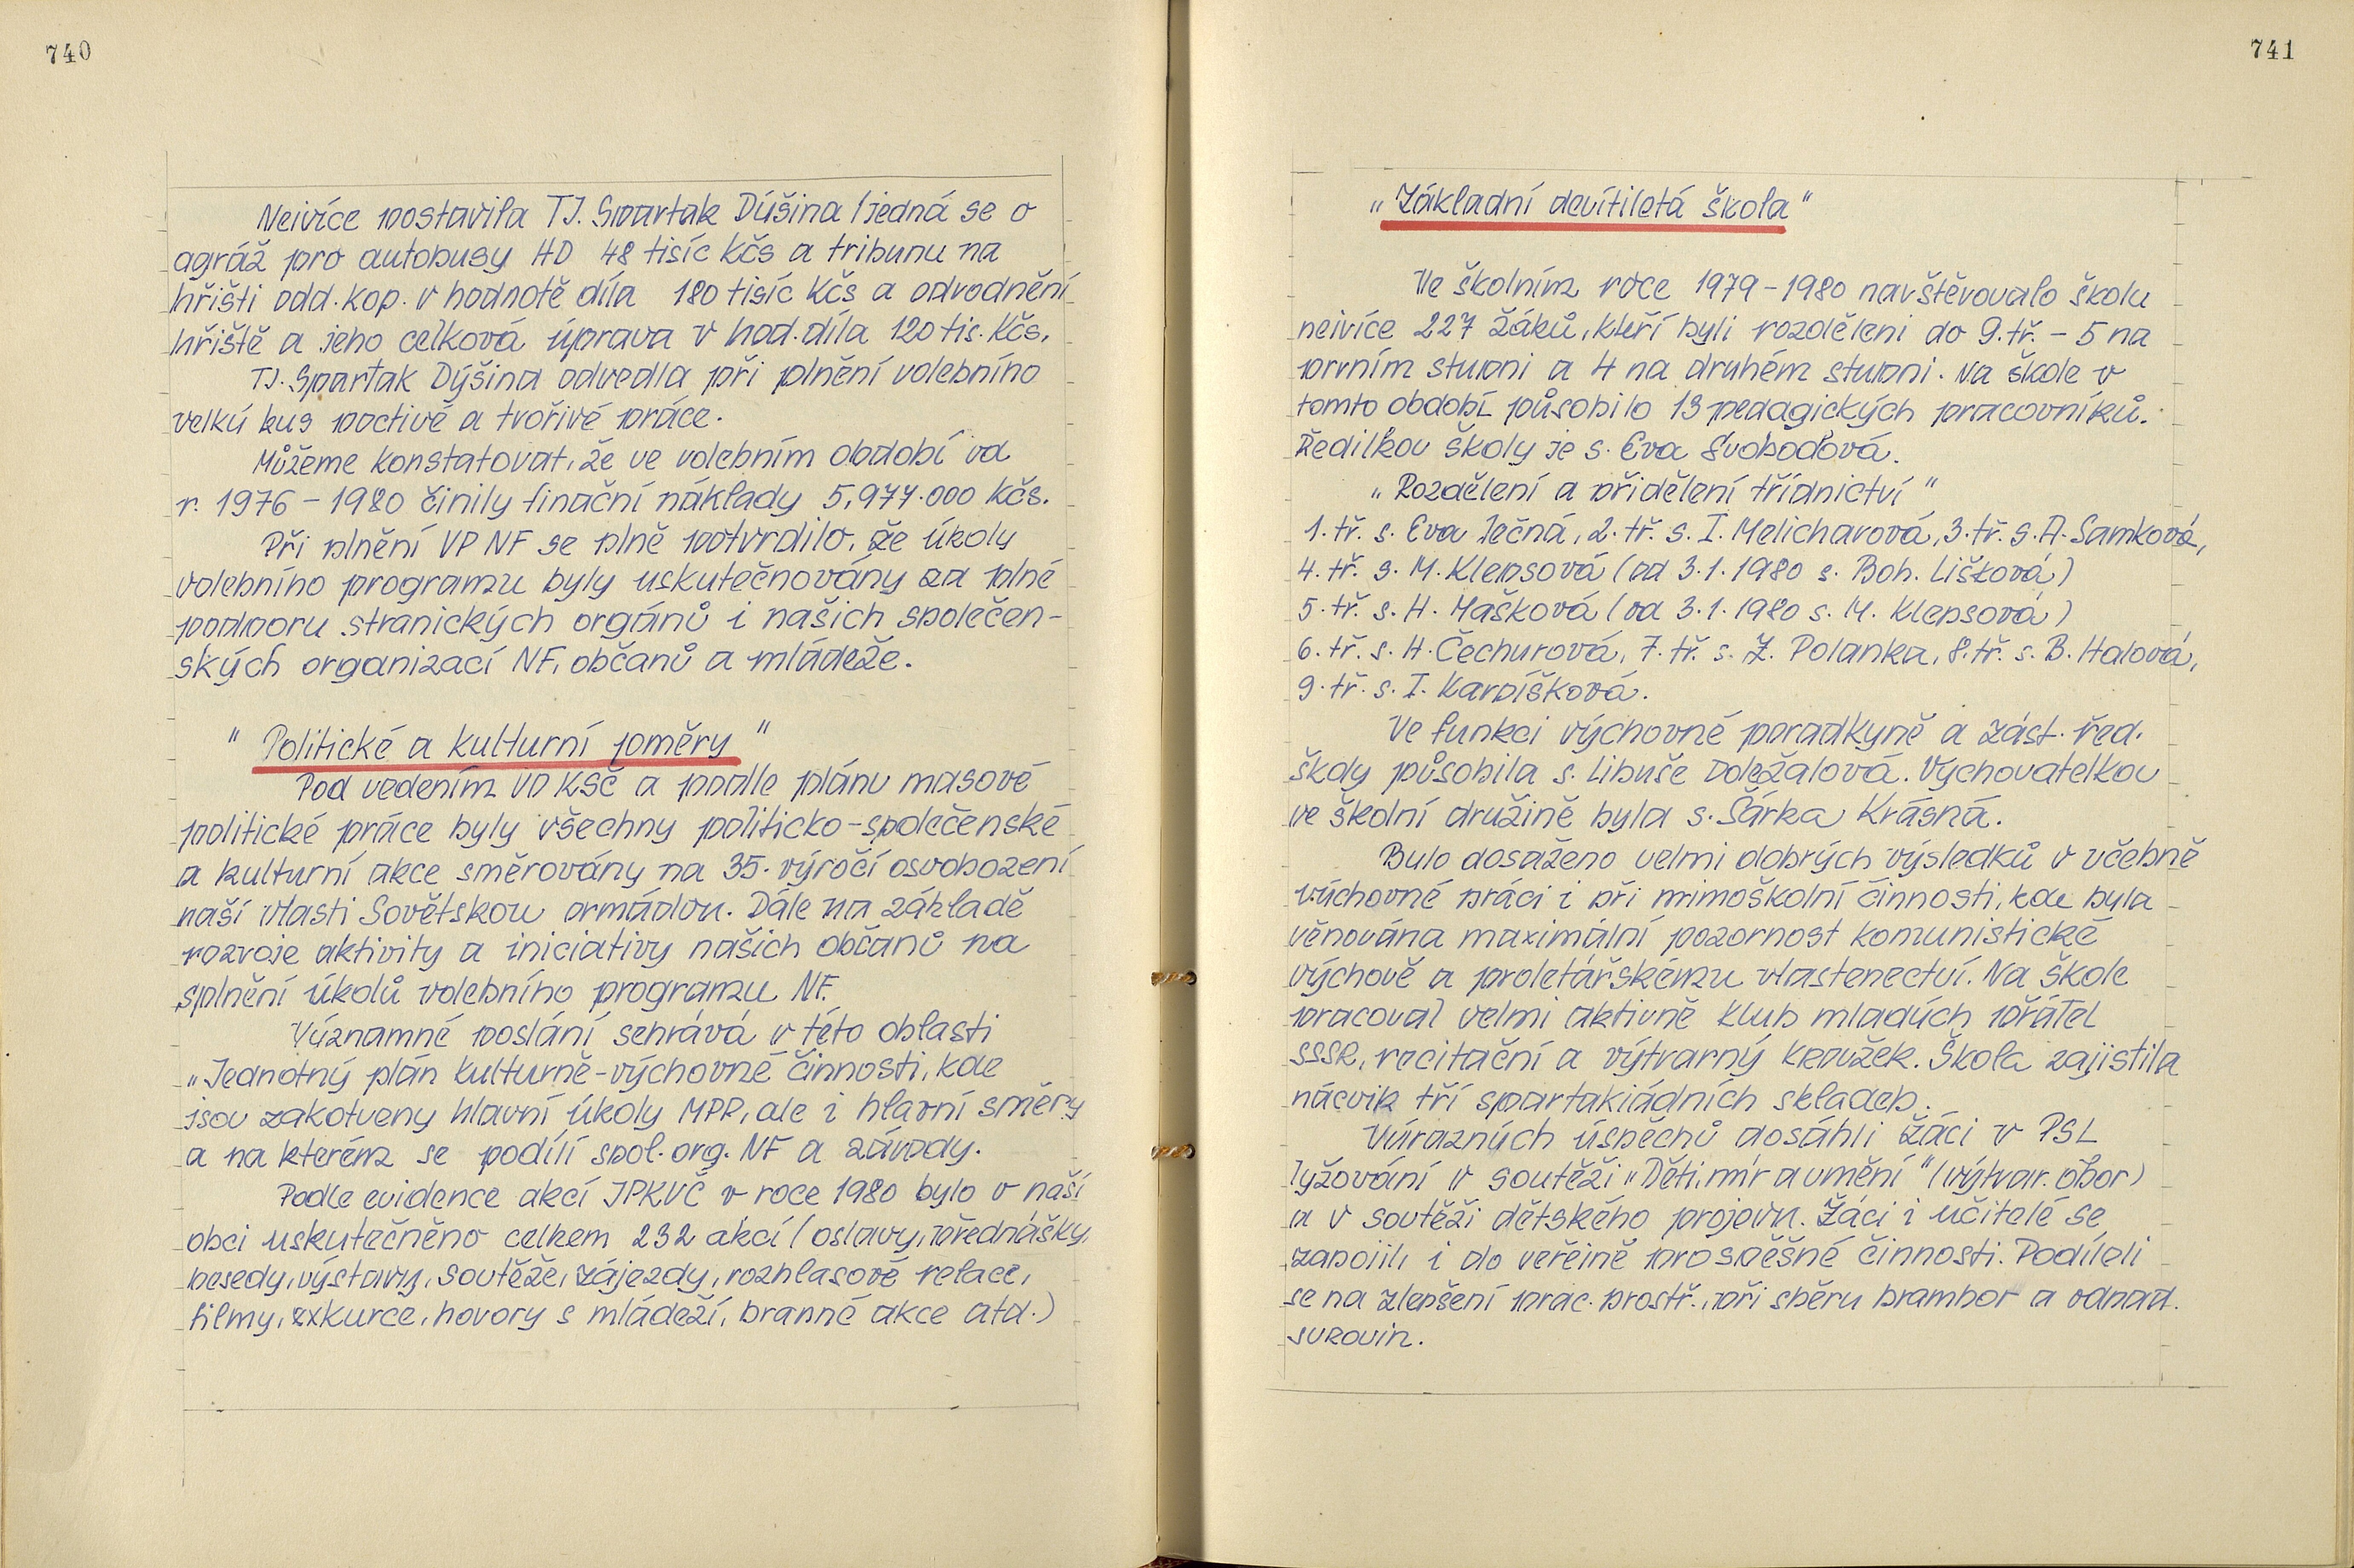 740
Nejvíce postavila TJ. Spartak Dýšina /jedná se o
agráž pro autobusy HD 48 tisíc Kčs a tribunu na
hřišti odd. kop. v hodnotě díla 180 tisíc Kčs a odvodnění
hřiště a jeho celková úprava v hod. díla 120 tis. Kčs.
TJ. Spartak Dýšina odvedla při plnění volebního
velký kus poctivé a tvořivé práce.
Můžeme konstatovat, že ve volebním období od
r. 1976 - 1980 činily finační náklady 5,977.000 Kčs.
Při plnění VP NF se plně potvrdilo, že úkoly
volebního programu byly uskutečnovány za plné
podporu stranických orgánů i našich společen-
ských organizací NF, občanů a mládeže.
" Politické a kulturní poměry "
Pod vedením VO KSČ a podle plánu masové
politické práce byly všechny politicko-společenské
a kulturní akce směrovány na 35. výročí osvobození
naší vlasti Sovětskou armádou. Dále na základě
rozvoje aktivity a iniciativy našich občanů na
splnění úkolů volebního programu NF.
Významné poslání sehrává v této oblasti
„Jednotný plán kulturně-výchovné činnosti, kde
jsou zakotveny hlavní úkoly MPP, ale i hlavní směry
a na kterém se podílí spol. org. NF a závody.
Podle evidence akcí JPKVČ v roce 1980 bylo v naší
obci uskutečněno celkem 232 akcí (oslavy, přednášky,
besedy, výstavy, soutěže, zájezdy, rozhlasové relace,
filmy, exkurce, hovory s mládeží, branné akce atd.)
741
„Základní devítiletá škola"
Ve školním roce 1979 - 1980 navštěvovalo školu
nejvíce 227 žáků, kteří byli rozděleni do 9. tř. - 5 na
prvním stupni a 4 na druhém stupni. Na škole v
tomto období působilo 13 pedagických pracovníků.
Ředilkou školy je s. Eva Svobodová.
„Rozdělení a přidělení třídnictví"
1. tř. s. Eva Ječná, 2. tř. s. I. Melicharová, 3. tř. s. A. Samková,
4. tř. s. M. Klepsová (od 3.1.1980 s. Boh. Lišková)
5. tř. s. H. Mašková (od 3.1.1980 s. M. Klepsová)
6. tř. s. H. Čechurová, 7. tř. s. Z. Polanka, 8. tř. s. B. Halová,
9. tř. s. I. Karpíšková.
Ve funkci výchovné poradkyně a zást. řed.
školy působila s. Libuše Doležalová. Vychovatelkou
ve školní družině byla s. Šárka Krásná.
Bylo dosaženo velmi dobrých výsledků v učebně
výchovné práci i při mimoškolní činnosti, kde byla
věnována maximální pozornost komunistické
výchově a proletářskému vlastenectví. Na škole
pracoval velmi aktivně klub mladých přátel
SSSR, recitační a výtvarný kroužek. Škola zajistila
nácvik tří spartakiádních skladeb.
Výrazných úspěchů dosáhli žáci v PSL
lyžování v soutěži „Děti, mír a umění" (výtvar. obor)
a v soutěži dětského projevu. Žáci i učitelé se
zapojili i do veřejně prospěšné činnosti. Podíleli
se na zlepšení prac. prostř., při sběru brambor a odpad.
surovin.